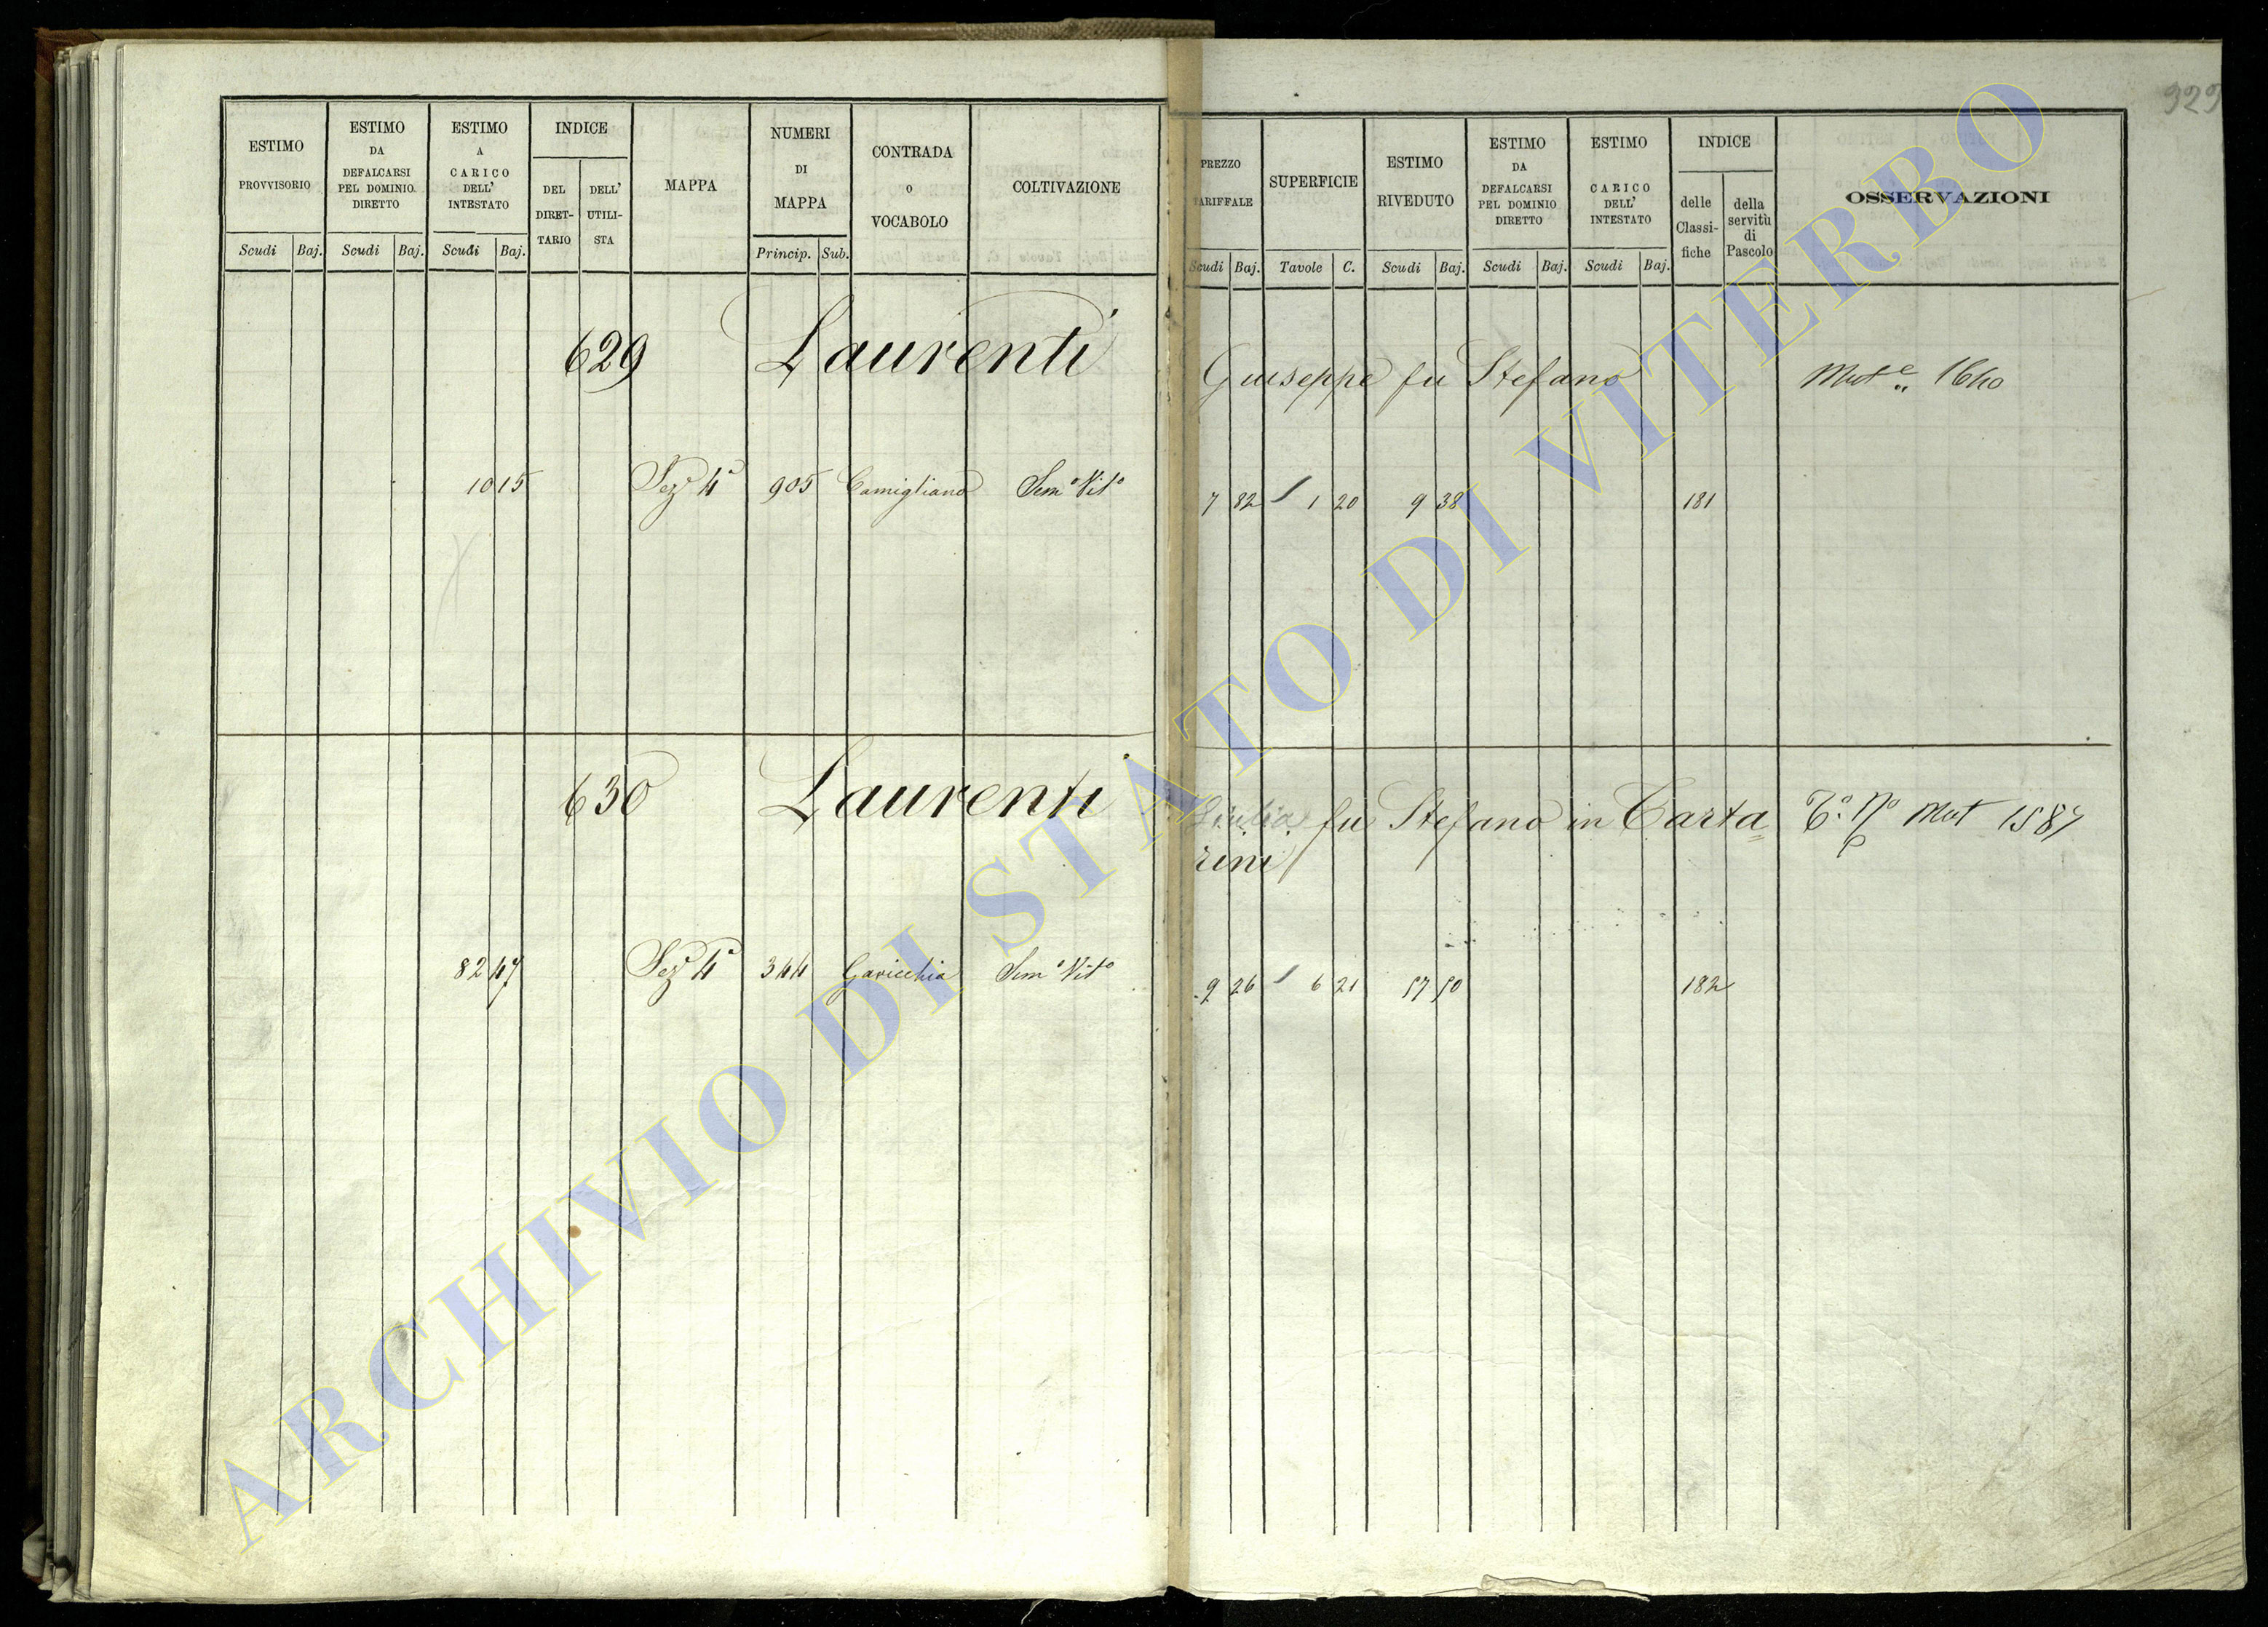 ESTIMO PROVVISORIO
Scudi Baj.
ESTIMO DA DEFALCARSI PEL DOMINIO DIRETTO
Scudi Baj.
ESTIMO A CARICO DELL' INTESTATO
Scudi Baj.
INDICE
DEL DIRET-TARIO
DELL' UTILI-STA
MAPPA
NUMERI DI MAPPA
Princip. Sub.
CONTRADA o VOCABOLO
COLTIVAZIONE
PREZZO TARIFFALE
Scudi Baj.
SUPERFICIE
Tavole C.
ESTIMO RIVEDUTO
Scudi Baj.
ESTIMO DA DEFALCARSI PEL DOMINIO DIRETTO
Scudi Baj.
ESTIMO CARICO DELL' INTESTATO
Scudi Baj.
INDICE
delle Classi-fiche
della servitù di Pascolo
OSSERVAZIONI
629 Laurenti Giuseppe fu Stefano Mut.e 1640
10 15 Sez.e 4a 905 Camigliano Sem.o Vit.o 7 82 1 20 9 38 181
630 Laurenti Giulia fu Stefano in Carta= T.o N.o Mut 1587
rini
82 47 Sez.e 4a 344 Gavicchia Sem.o Vit.o 9 26 6 21 57 50 182
ARCHIVIO DI STATO DI VITERBO